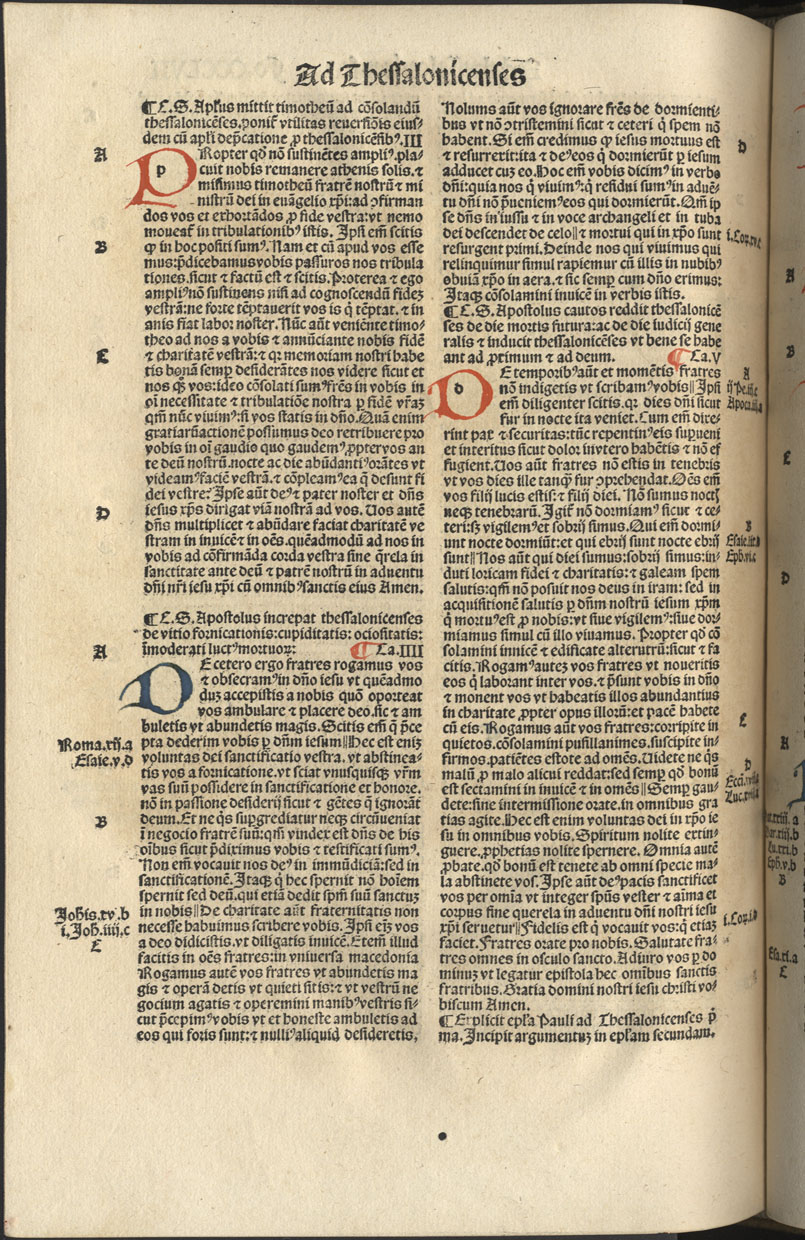 Ad Thessalonicenses
¶ C.S. Apl̃us mittit timotheũ ad cõsolandũ
thessalonicẽses. ponit̃ vtilitas reuersiõis eius⸗
dem cũ apl̃i dep̃catione ꝓ thessalonicẽsibꝰ. III
A
PRopter qd̃ nõ sustinẽtes ampliꝰ. pla⸗
cuit nobis remanere athenis solis. ⁊
misimus timotheũ fratrẽ nostrũ ⁊ mi
nistrũ dei in euãgelio xp̃i: ad ꝯfirman
dos vos et exhortãdos ꝓ fide vestra: vt nemo
moueat̃ in tribulationibꝰ istis. Ipsi em̃ scitis
B
ꝙ in hoc positi sumꝰ. Nam et cũ apud vos esse
mus: p̃dicebamus vobis passuros nos tribula
tiones. sicut ⁊ factũ est ⁊ scitis. Propterea ⁊ ego
ampliꝰ nõ sustinens misi ad cognoscendũ fidez
vestrã: ne forte tẽptauerit vos is q̃ tẽptat. ⁊ in
anis fiat labor noster. Nũc aũt veniẽte timo⸗
theo ad nos a vobis ⁊ annũciante nobis fidẽ
C
⁊ charitatẽ vestrã: ⁊ qr memoriam nostri habe
tis bonã semp̃ desiderãtes nos videre sicut et
nos qꝫ vos: ideo cõsolati sumꝰ frẽs in vobis in
oĩ necessitate ⁊ tribulatiõe nostra ꝑ fidẽ vr̃aꝫ
qm̃ nũc viuimꝰ: si vos statis in dño. Quã enim
gratiarũ actionẽ possumus deo retribuere pro
vobis in oĩ gaudio quo gaudemꝰ ꝓpter vos an
te deũ nostrũ. nocte ac die abũdantiꝰ orãtes vt
videamꝰ faciẽ vestrã. ⁊ cõpleamꝰ ea q̃ desunt fi
dei vestre? Ipse aũt deꝰ ⁊ pater noster et dñs
D
iesus xp̃s dirigat viã nostrã ad vos. Uos autẽ
dñs multiplicet ⁊ abũdare faciat charitatẽ ve
stram in inuicẽ ⁊ in oẽs. quẽadmodũ ad nos in
vobis ad cõfirmãda corda vestra sine q̃rela in
sanctitate ante deũ ⁊ patrẽ nostrũ in aduentu
dñi nr̃i iesu xp̃i cũ omnibꝰ sanctis eius Amen.
¶ C.S. Apostolus increpat thessalonicenses
de vitio fornicationis: cupiditatis: ociositatis:
A
ĩmoderati luctꝰ mortuoꝝ: ¶ Ca. IIII
DE cetero ergo fratres rogamus vos
⁊ obsecramꝰ in dño iesu vt quẽadmo
duꝫ accepistis a nobis quõ oporteat
vos ambulare ⁊ placere deo. sic ⁊ am
buletis vt abundetis magis. Scitis em̃ q̃ p̃ce
Roma. xij. a
pta dederim vobis ꝑ dñm iesum ‖ Hec est eniꝫ
Esaie. v. d
voluntas dei sanctificatio vestra. vt abstinea⸗
tis vos a fornicatione. vt sciat vnusquisqꝫ vr̃m
vas suũ possidere in sanctificatione et honore.
nõ in passione desiderij sicut ⁊ gẽtes q̃ ignorãt
B
deum. Et ne q̃s suꝑgrediatur neqꝫ circũueniat
ĩ negocio fratrẽ suũ: qm̃ vindex est dñs de his
oĩbus sicut p̃diximus vobis ⁊ testificati sumꝰ.
Non em̃ vocauit nos deꝰ in immũdiciã: sed in
sanctificationẽ. Itaqꝫ q̃ hec spernit nõ hoĩem
spernit sed deũ. qui etiã dedit spm̃ suũ sanctuꝫ
Johis. xv. b
in nobis ‖ De charitate aũt fraternitatis non
i. Joh. iiij. c
necesse habuimus scribere vobis. Ipsi em̃ vos
C
a deo didicistis. vt diligatis inuicẽ. Etem̃ illud
facitis in oẽs fratres: in vniuersa macedonia
Rogamus autẽ vos fratres vt abundetis ma
gis ⁊ operã detis vt quieti sitis: ⁊ vt vestrũ ne
gocium agatis ⁊ operemini manibꝰ vestris si⸗
cut p̃cepimꝰ vobis vt et honeste ambuletis ad
eos qui foris sunt: ⁊ nulliꝰ aliquid desideretis.
Nolumꝰ aũt vos ignorare frẽs de dormienti⸗
bus vt nõ ꝯtristemini sicut ⁊ ceteri q̃ spem nõ
D
habent. Si em̃ credimus ꝙ iesus mortuus est
⁊ resurrexit: ita ⁊ deꝰ eos q̃ dormierũt ꝑ iesum
adducet cuꝫ eo. Hoc em̃ vobis dicimꝰ in verbo
dñi: quia nos q̃ viuimꝰ: q̃ residui sumꝰ in aduẽ⸗
tu dñi nõ p̃ueniemꝰ eos qui dormierũt. Qm̃ ip
se dñs in iussu ⁊ in voce archangeli et in tuba
dei descendet de celo ‖ ⁊ mortui qui in xp̃o sunt
resurgent primi. Deinde nos qui viuimus qui
relinquimur simul rapiemur cũ illis in nubibꝰ
obuiã xp̃o in aera. ⁊ sic semp̃ cum dño erimus:
Itaqꝫ cõsolamini inuicẽ in verbis istis.
¶ C.S. Apostolus caute reddit thessalonicẽ
ses de die mortis futura: ac de die iudicij gene
ralis ⁊ inducit thessalonicẽses vt bene se habe
ant ad ꝓximum ⁊ ad deum. ¶ Ca. V
A
DE temporibꝰ aũt et momẽtis fratres
nõ indigetis vt scribamꝰ vobis ‖ Ipsi
em̃ diligenter scitis. qr dies dñi sicut
fur in nocte ita veniet. Cum em̃ dixe⸗
rint pax ⁊ securitas: tũc repentinꝰ eis suꝑueni
et interitus sicut dolor in vtero habẽtis ⁊ nõ ef
fugient. Uos aũt fratres nõ estis in tenebris
vt vos dies ille tanqꝫ fur ꝯprehendat. Oẽs em̃
vos filij lucis estis: ⁊ filij diei. Nõ sumus noctꝭ
neqꝫ tenebrarũ. Igit̃ nõ dormiamꝰ sicut ⁊ ce⸗
B
teri: sꝫ vigilemꝰ et sobrij simus. Qui em̃ dormi⸗
Esaie. lix. d
unt nocte dormiũt: et qui ebrij sunt nocte ebrij
Eph. vi. c
sunt ‖ Nos aũt qui diei sumus: sobrij simus: in⸗
duti loricam fidei ⁊ charitatis: ⁊ galeam spem
salutis: qm̃ nõ posuit nos deus in iram: sed in
acquisitionẽ salutis ꝑ dñm nostrũ iesum xp̃m
q̃ mortuꝰ est ꝓ nobis: vt siue vigilemꝰ: siue dor⸗
miamus simul cũ illo viuamus. Propter qd̃ cõ
solamini inuicẽ ⁊ edificate alterutrũ: sicut ⁊ fa
citis. Rogamꝰ auteꝫ vos fratres vt noueritis
eos q̃ laborant inter vos. ⁊ p̃sunt vobis in dño
⁊ monent vos vt habeatis illos abundantius
in charitate ꝓpter opus illorũ: et pacẽ habete
C
cũ eis. Rogamus aũt vos fratres: corripite in
quietos. cõsolamini pusillanimes. suscipite in⸗
firmos. patiẽtes estote ad omẽs. Uidete ne q̃s
D
malũ ꝓ malo alicui reddat: sed semp̃ qd̃ bonũ
est sectamini in inuicẽ ⁊ in omẽs ‖ Semꝑ gau⸗
dete: sine intermissione orate. in omnibus gra
tias agite. Hec est enim voluntas dei in xp̃o ie
su in omnibus vobis. Spiritum nolite extin⸗
guere. ꝓphetias nolite spernere. Omnia autẽ
ꝓbate. qd̃ bonũ est tenete ab omni specie ma⸗
la abstinete vos. Ipse aũt deꝰ pacis sanctificet
vos per omĩa vt integer spũs vester ⁊ aĩma et
corpus sine querela in aduentu dñi nostri iesu
xp̃i seruetur ‖ Fidelis est q̃ vocauit vos: q̃ etiaꝫ
faciet. Fratres orate pro nobis. Salutate fra⸗
tres omnes in osculo sancto. Adiuro vos ꝑ do
minuꝫ vt legatur epistola hec omĩbus sanctis
fratribus. Gratia domini nostri iesu christi vo⸗
biscum Amen.
¶ Explicit epl̃a Pauli ad Thessalonicenses p̃
ma. Incipit argumentuꝫ in epl̃am secundam.